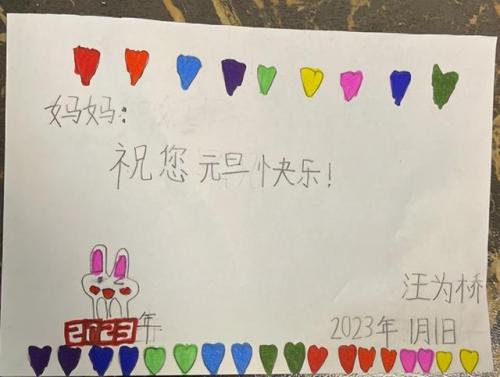 妈妈：
祝您元旦快乐！
2023年
汪为桥
2023年1月1日